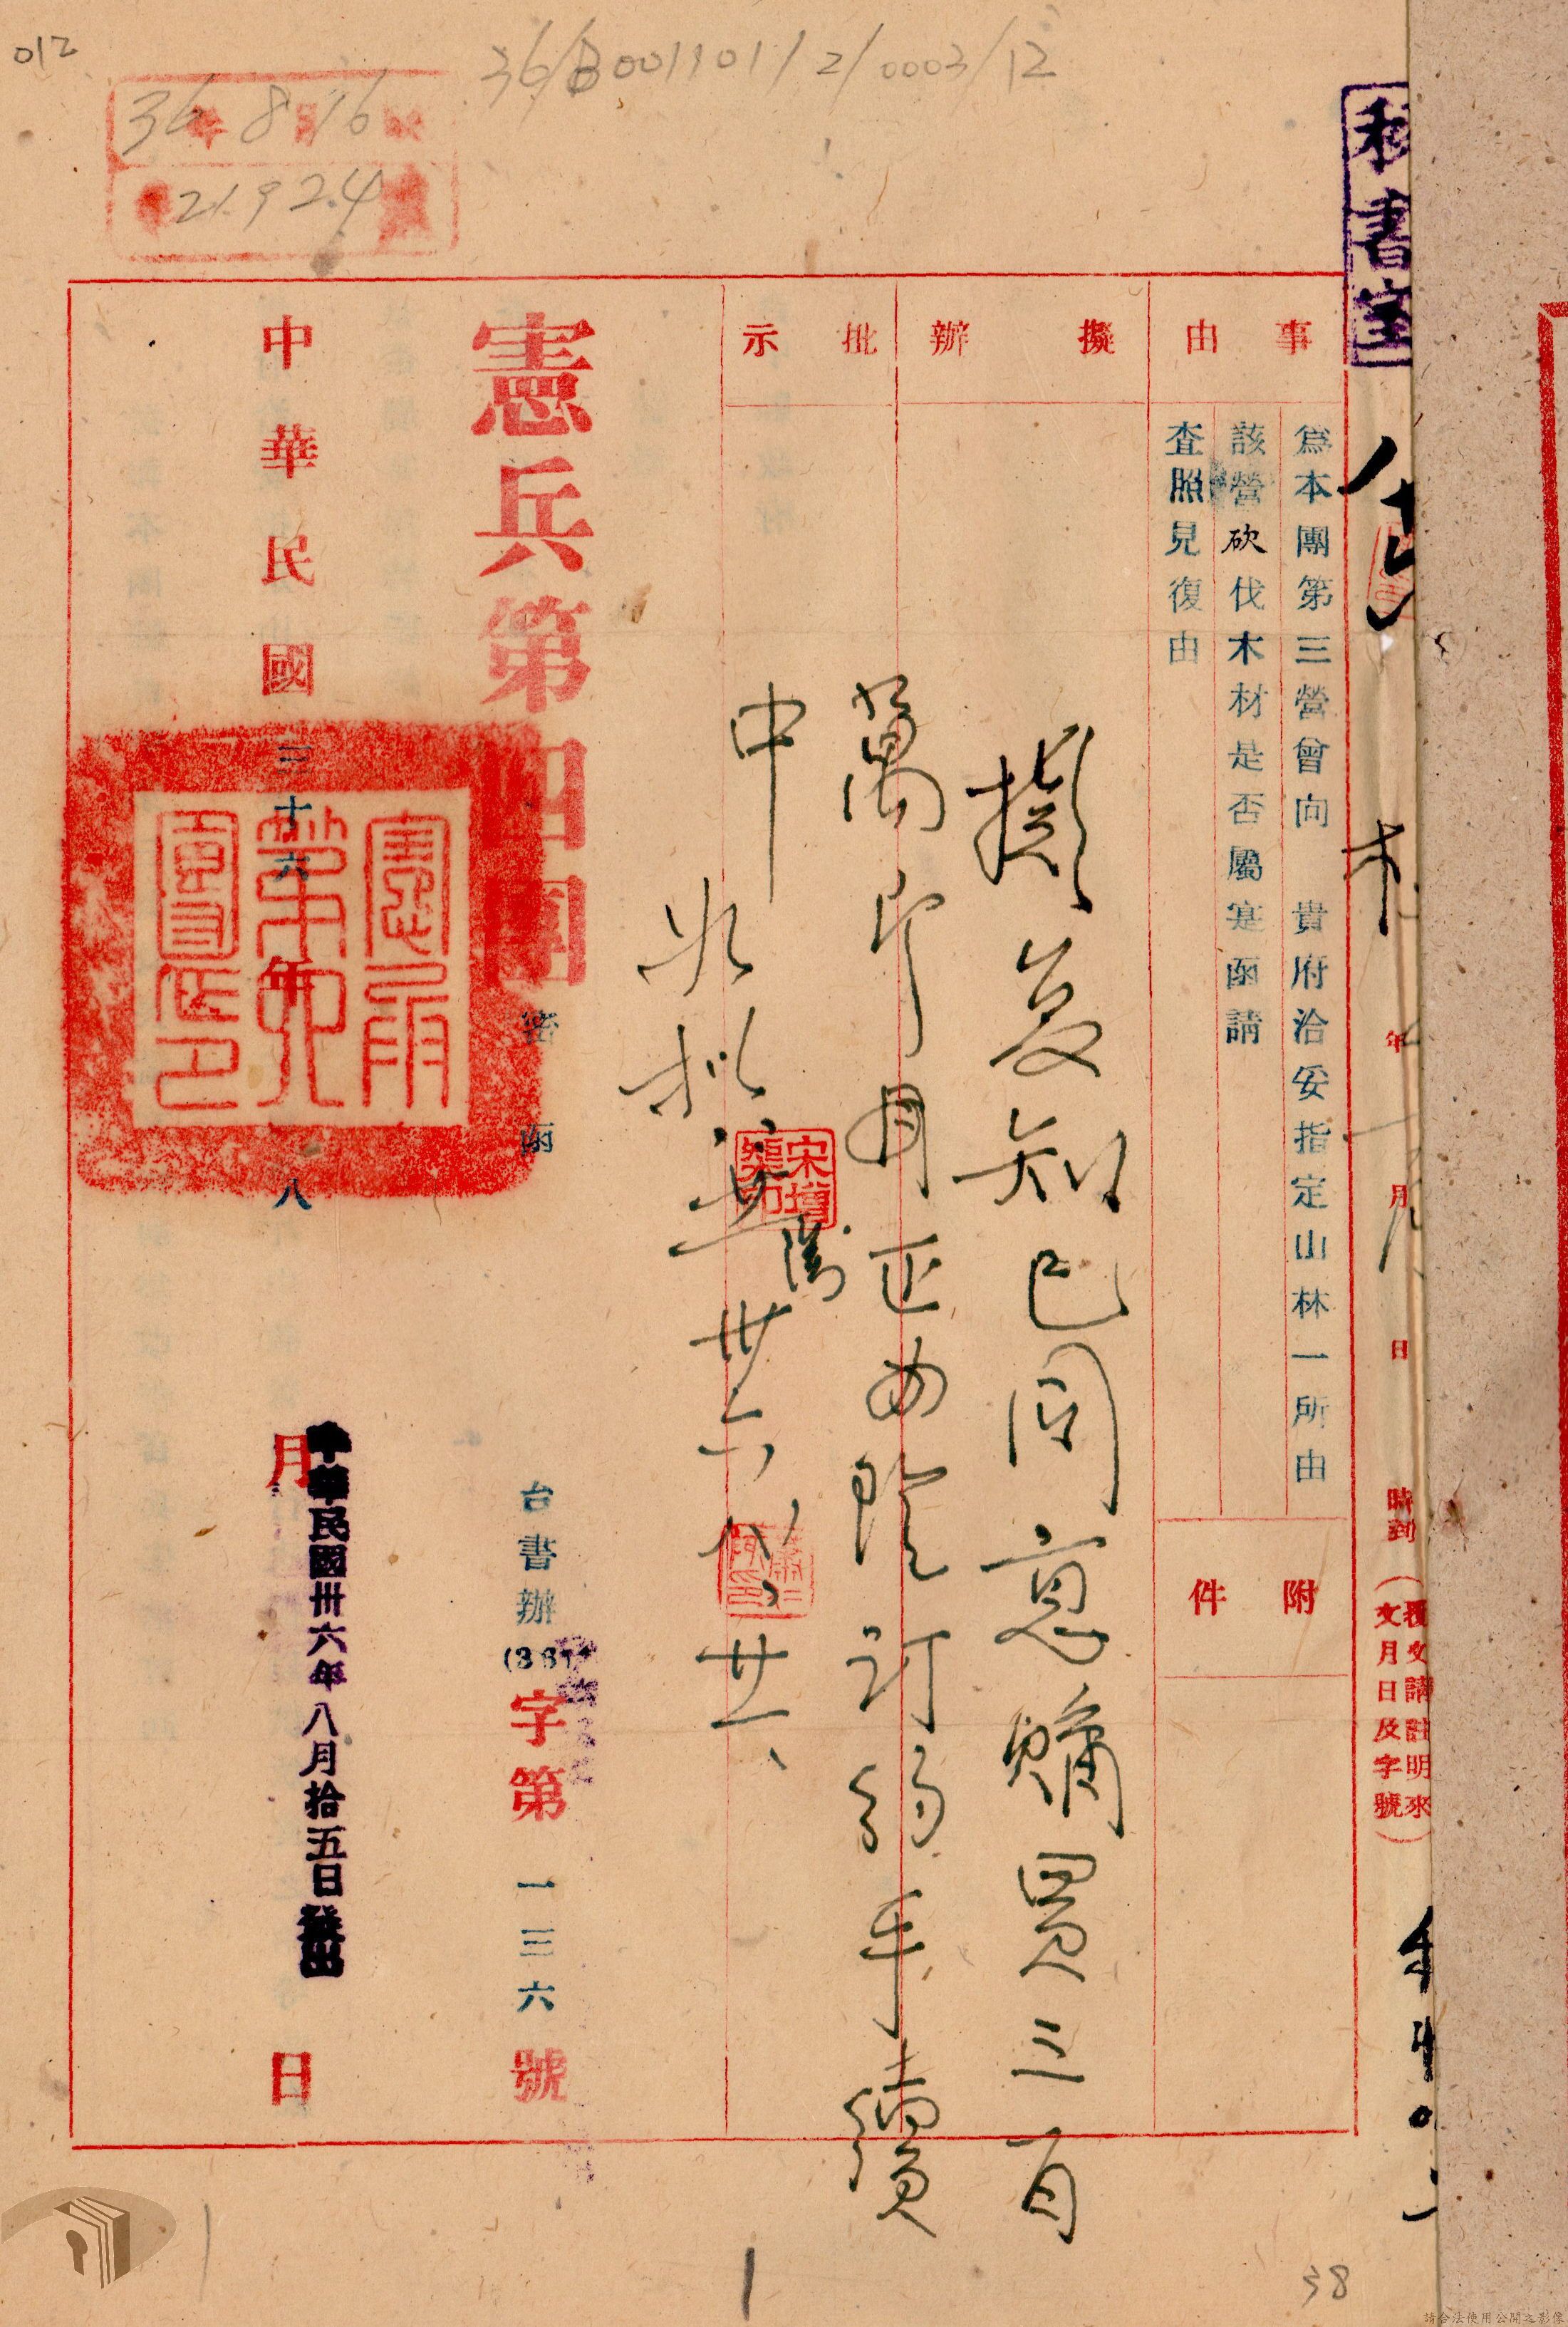 012
36/B001101/2/0003/12
36年8月16
21924
秘書室
年 月 日 時到
(覆文請註明來
文月日及字號)
事由
為本團第三營曾向 貴府洽妥指定山林一所由
該營砍伐木材是否屬寔函請
查照見復由
附件
擬辦
批示
擬復知已同意購買三百
萬即用正由 訂約手續
中
如擬
卅六 八、廿一、
宋增榘印
憲兵第四團
密函
台書辦(36)字第一三六號
中華民國三十六年八月 日
中華民國卅六年八月拾五日發出
38
請合法使用公開之影像